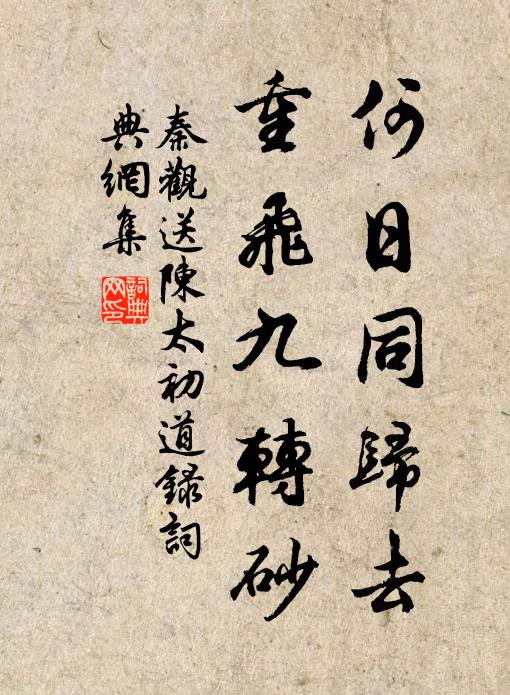 何日同歸去
重飛九轉砂
秦觀送陳太初道録詞
典網集
詞典網印